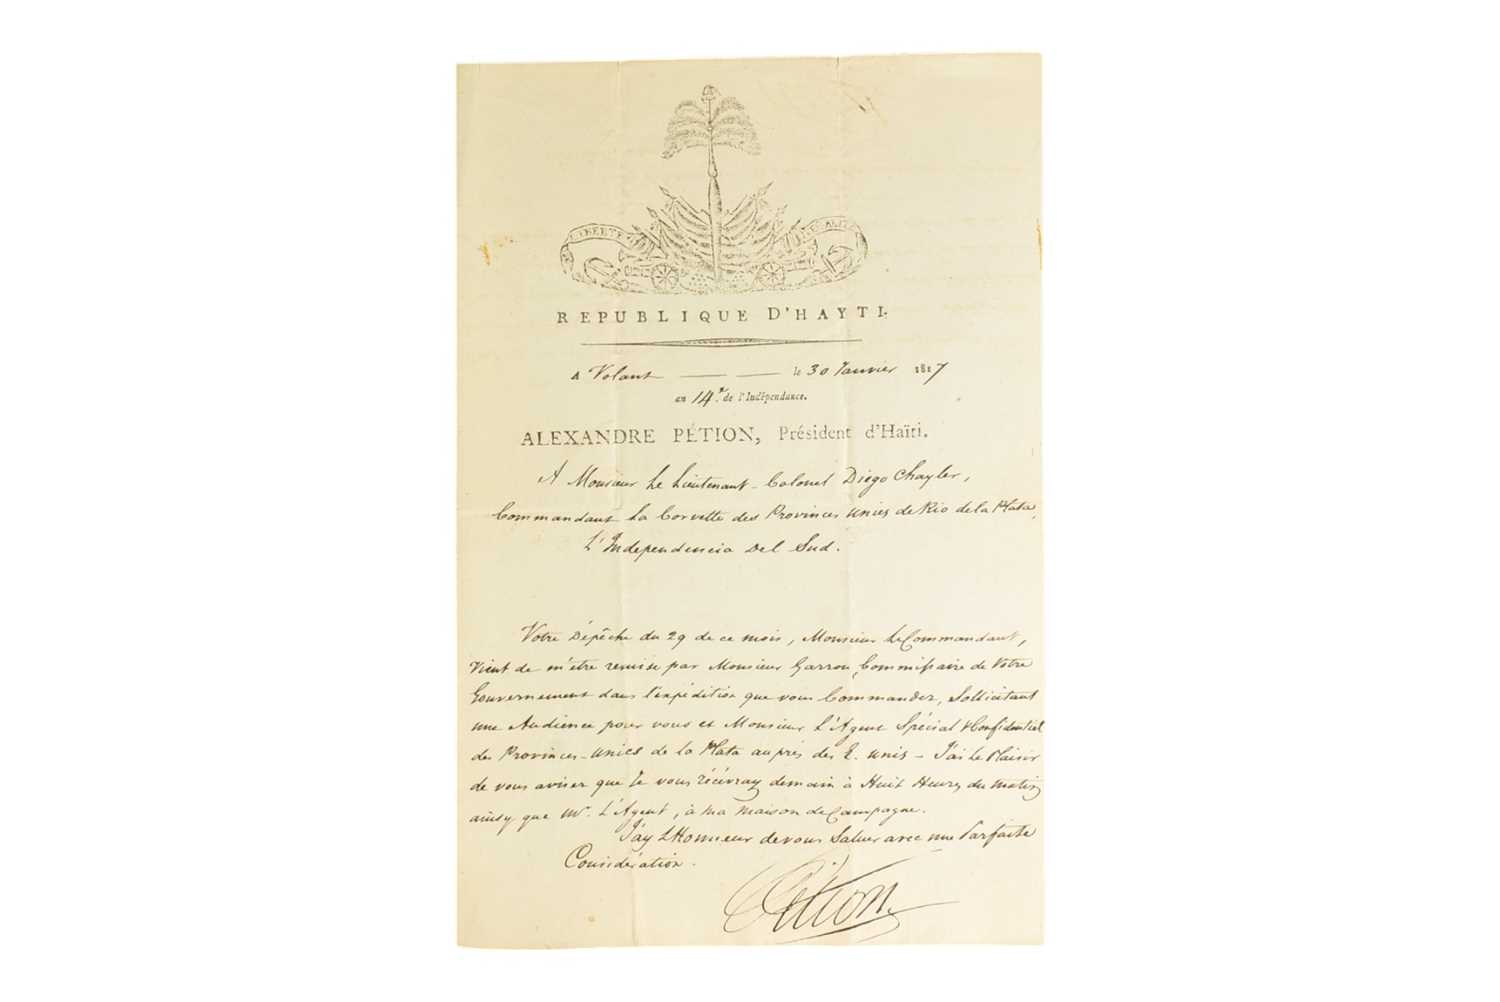 LIBERTÉ
EGALITÉ
REPUBLIQUE D'HAYTI.
A Volant le 30 Janvier 1817
an 14e. de l'Indépendance.
ALEXANDRE PÉTION, Président d'Haïti.
A Monsieur Le Lieutenant-Colonel Diego Chayter,
Commandant La Corvette des Provinces Unies de Rio de la Plata,
L'Independencia Del Sud.
Votre Dépêche du 29 de ce mois, Monsieur Le Commandant,
vient de m'etre remise par Monsieur Garrou, Commissaire de Votre
Gouvernement dans l'expédition que vous Commandez, Sollicitant
une Audience pour vous et Monsieur L'Agent Spécial & Confidentiel
des Provinces-unies de la Plata auprès des E. unis - J'ai Le Plaisir
de vous aviser que Je vous récévray demain à Huit Heures du matin
ainsy que Mr. L'Agent, à ma maison de Campagne.
J'ay L'Honneur de vous Saluer avec une Parfaite
Considération.
Pétion